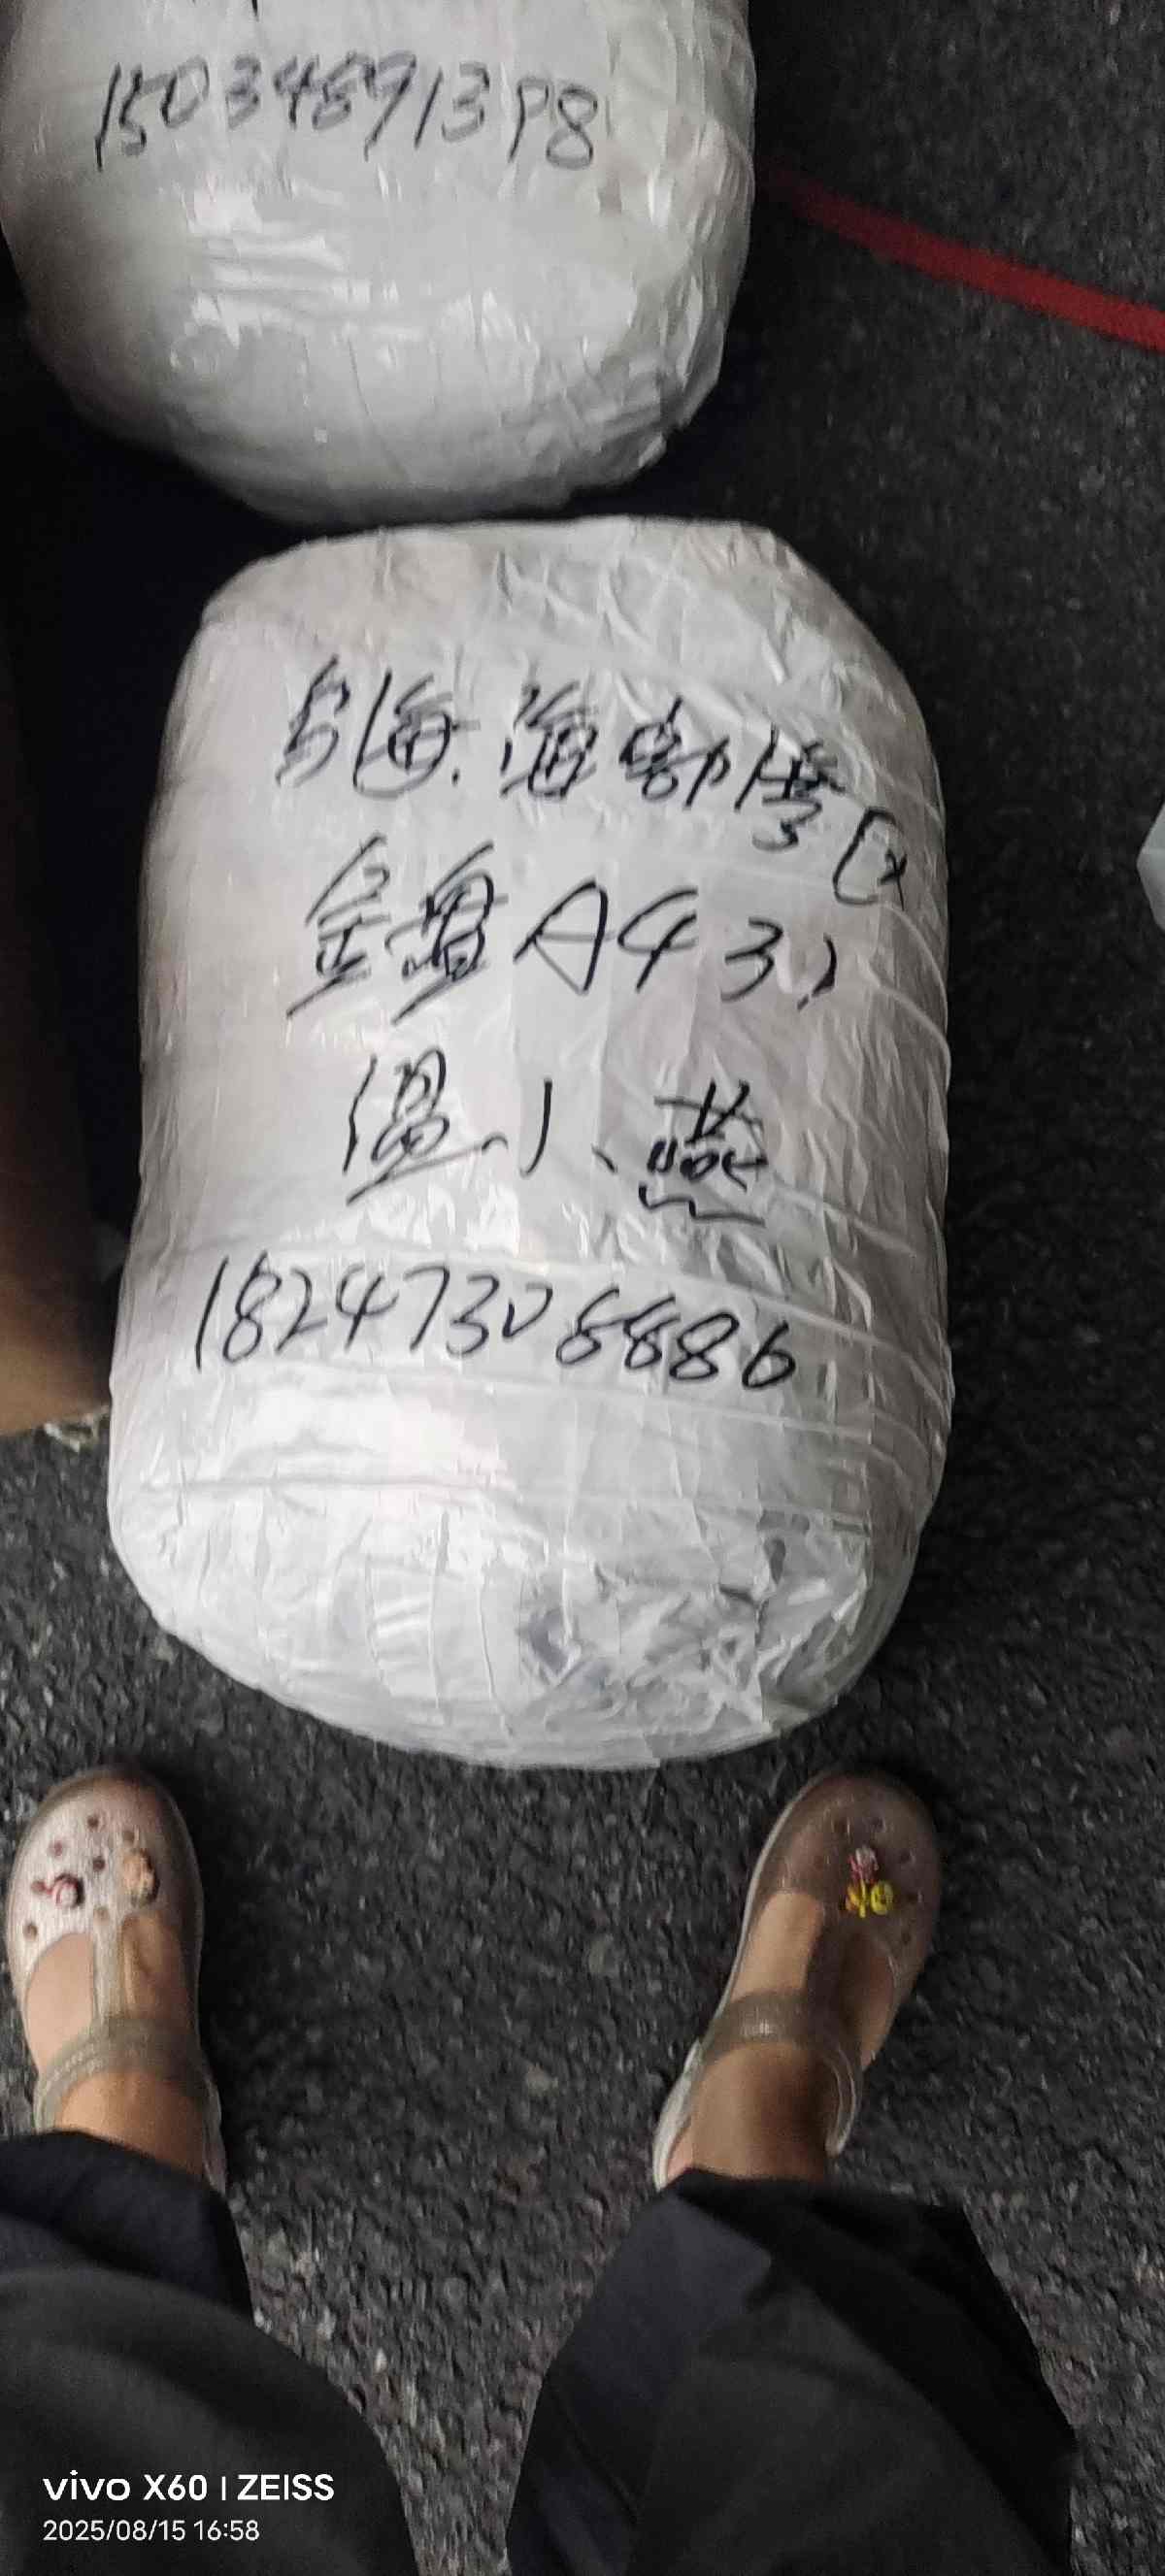 15034891398
乌海.海勃湾区
金盘A432
温小燕
18247308886
vivo X60 | ZEISS
2025/08/15 16:58